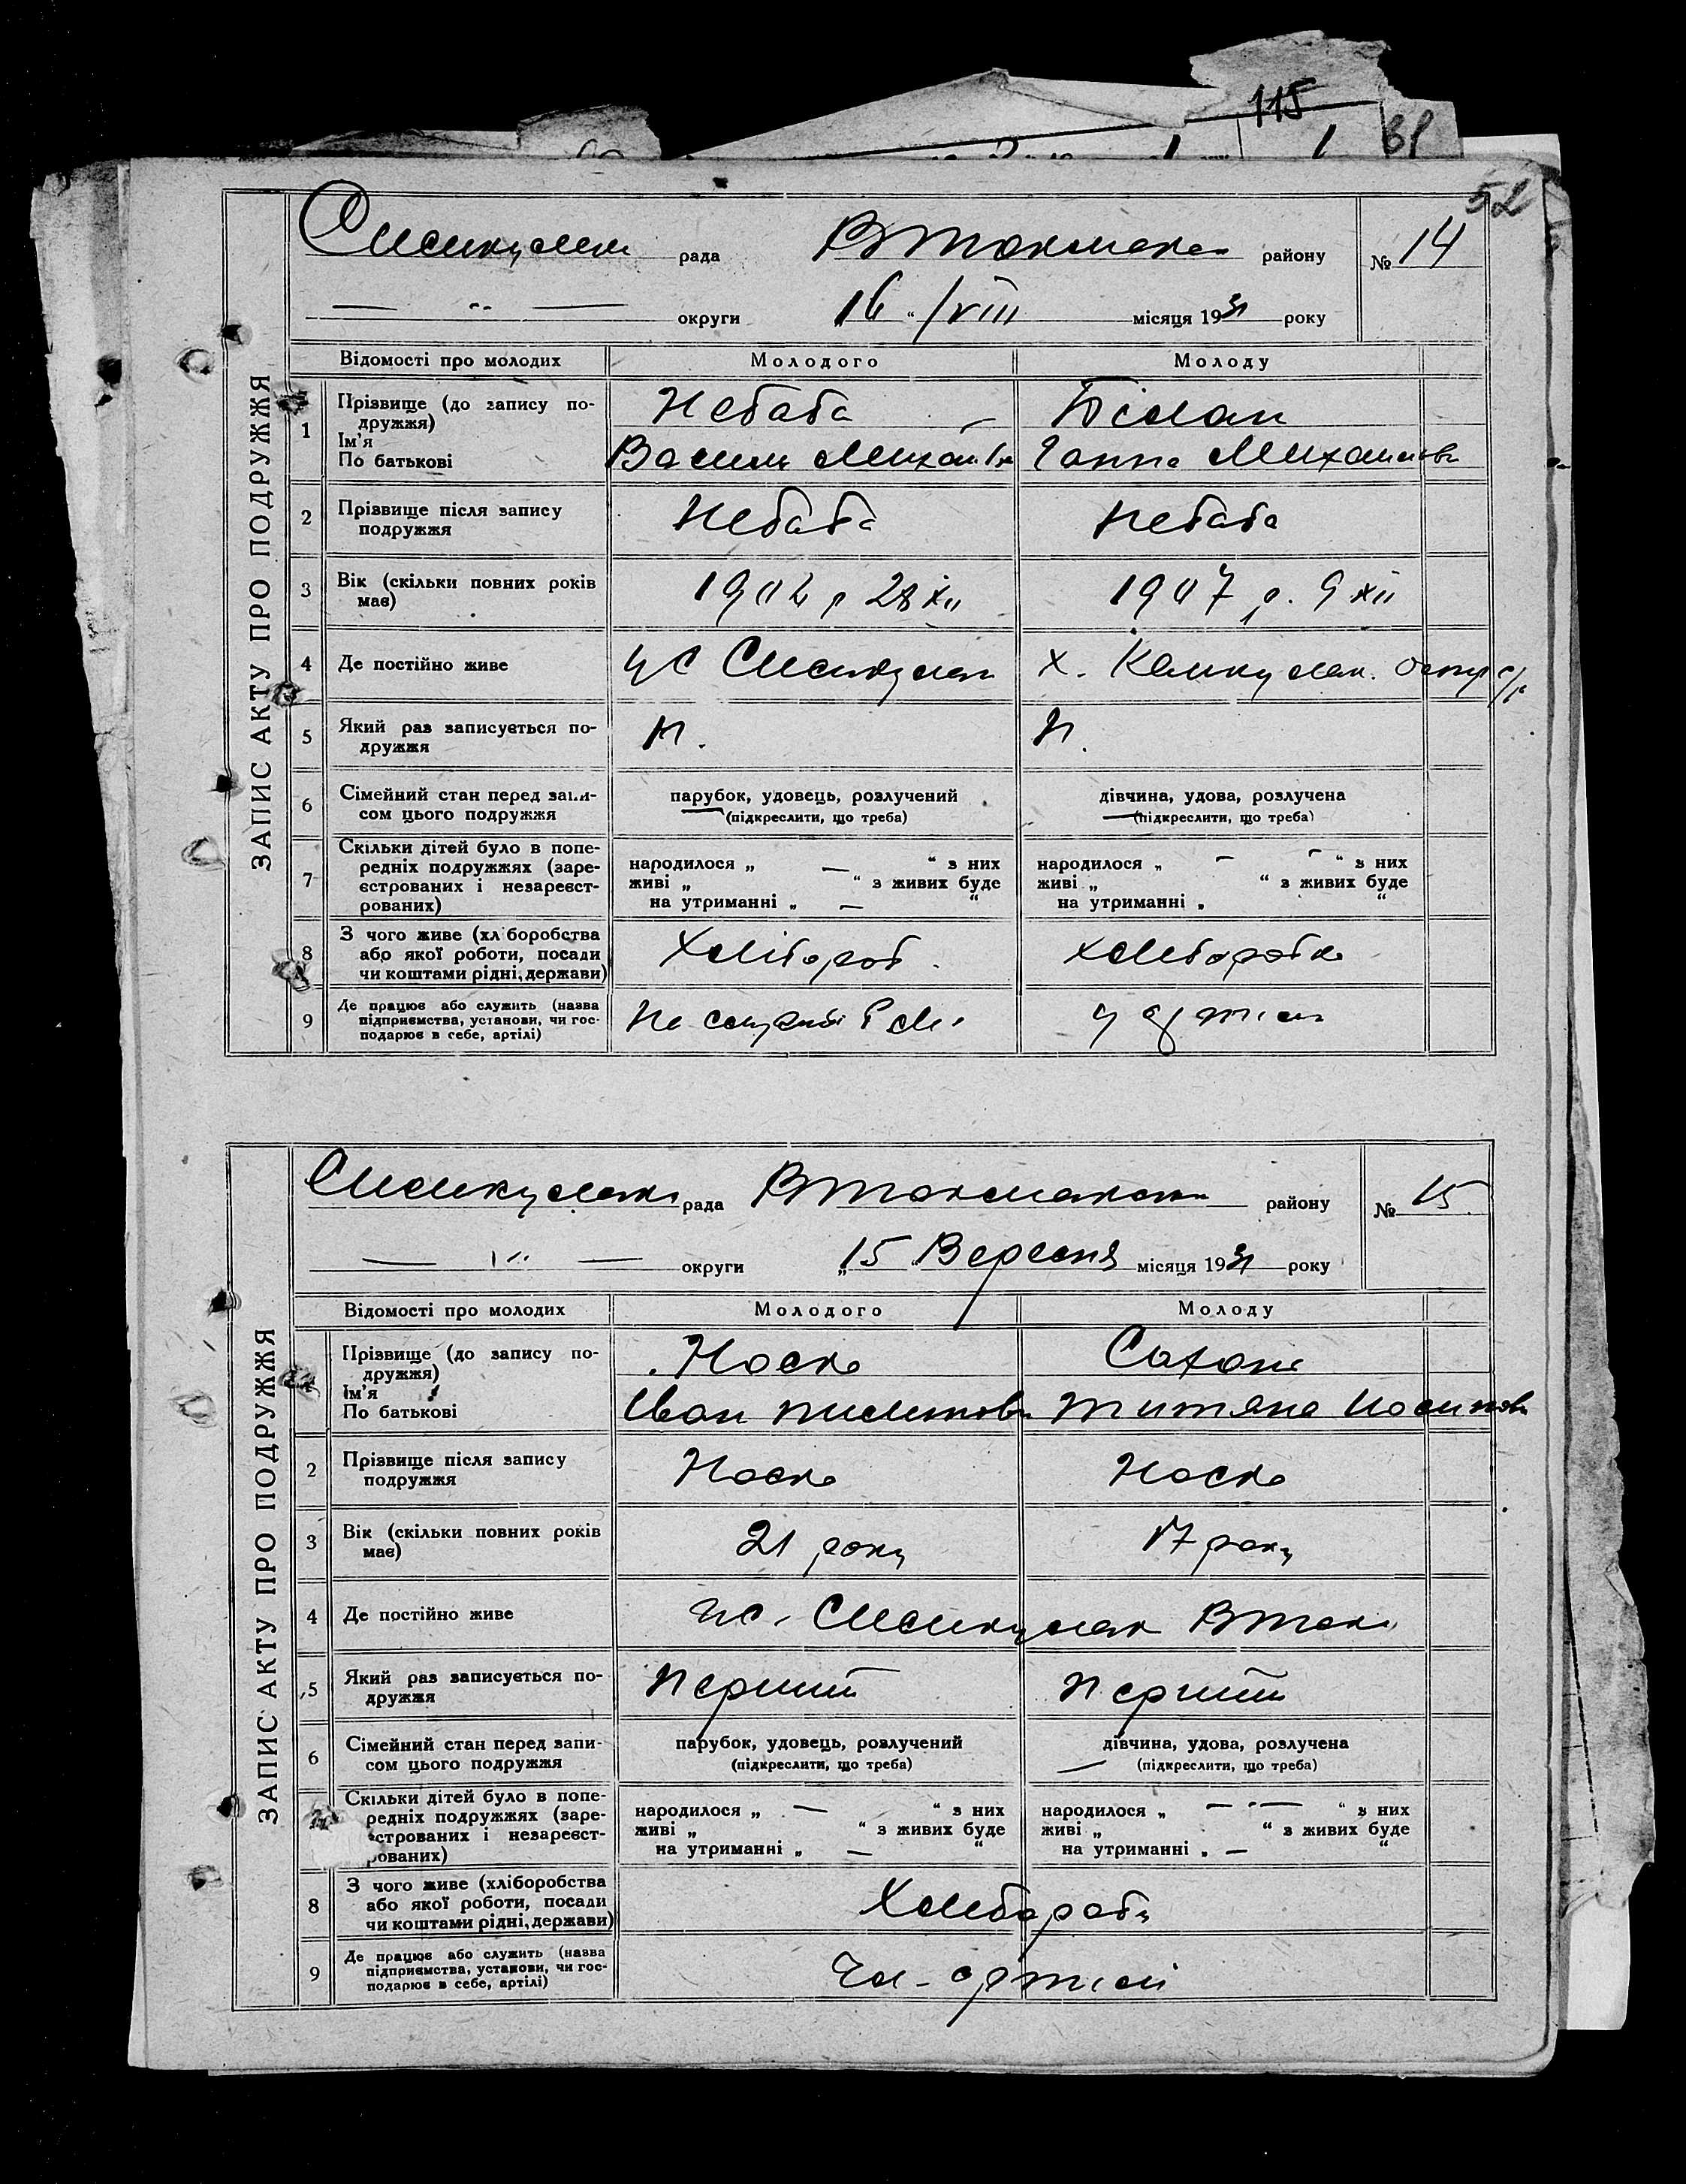 115
52
ЗАПИС АКТУ ПРО ПОДРУЖЖЯ
рада
району
№ 14
округи
16 /VIII місяця 1931 року
Відомості про молодих Молодого Молоду
1 Прізвище (до запису подружжя) Небаба Білан
Ім'я
По батькові Василь Михайл Ганна Михайлов
2 Прізвище після запису подружжя Небаба Небаба
3 Вік (скільки повних років має) 1904 р 28 XII 1907 р. 9 XII
4 Де постійно живе х.
5 Який раз записується подружжя п. п.
6 Сімейний стан перед записом цього подружжя парубок, удовець, розлучений (підкреслити, що треба) дівчина, удова, розлучена (підкреслити, що треба)
7 Скільки дітей було в попередніх подружжях (зареєстрованих і незареєстрованих) народилося „ — “ з них живі „ “ з живих буде на утриманні „ — “ народилося „ — “ з них живі „ “ з живих буде на утриманні „ “
8 З чого живе (хліборобства або якої роботи, посади чи коштами рідні, держави) Хлібороб. хлібороб
9 Де працює або служить (назва підприємства, установи, чи господарює в себе, артілі) у
ЗАПИС АКТУ ПРО ПОДРУЖЖЯ
рада
району
№ 15
округи
„15“ Вересня місяця 1931 року
Відомості про молодих Молодого Молоду
Прізвище (до запису подружжя) Носко
Ім'я
По батькові Іван Пилипов Титяна Йосипов
2 Прізвище після запису подружжя Носко Носко
3 Вік (скільки повних років має) 21 року 17 року
4 Де постійно живе
5 Який раз записується подружжя Перший Перший
6 Сімейний стан перед записом цього подружжя парубок, удовець, розлучений (підкреслити, що треба) дівчина, удова, розлучена (підкреслити, що треба)
Скільки дітей було в попередніх подружжях (зареєстрованих і незареєстрованих) народилося „ — “ з них живі „ “ з живих буде на утриманні „ — “ народилося „ — “ з них живі „ “ з живих буде на утриманні „ — “
8 З чого живе (хліборобства або якої роботи, посади чи коштами рідні, держави) Хлібороби
9 Де працює або служить (назва підприємства, установи, чи господарює в себе, артілі) Чл. артілі